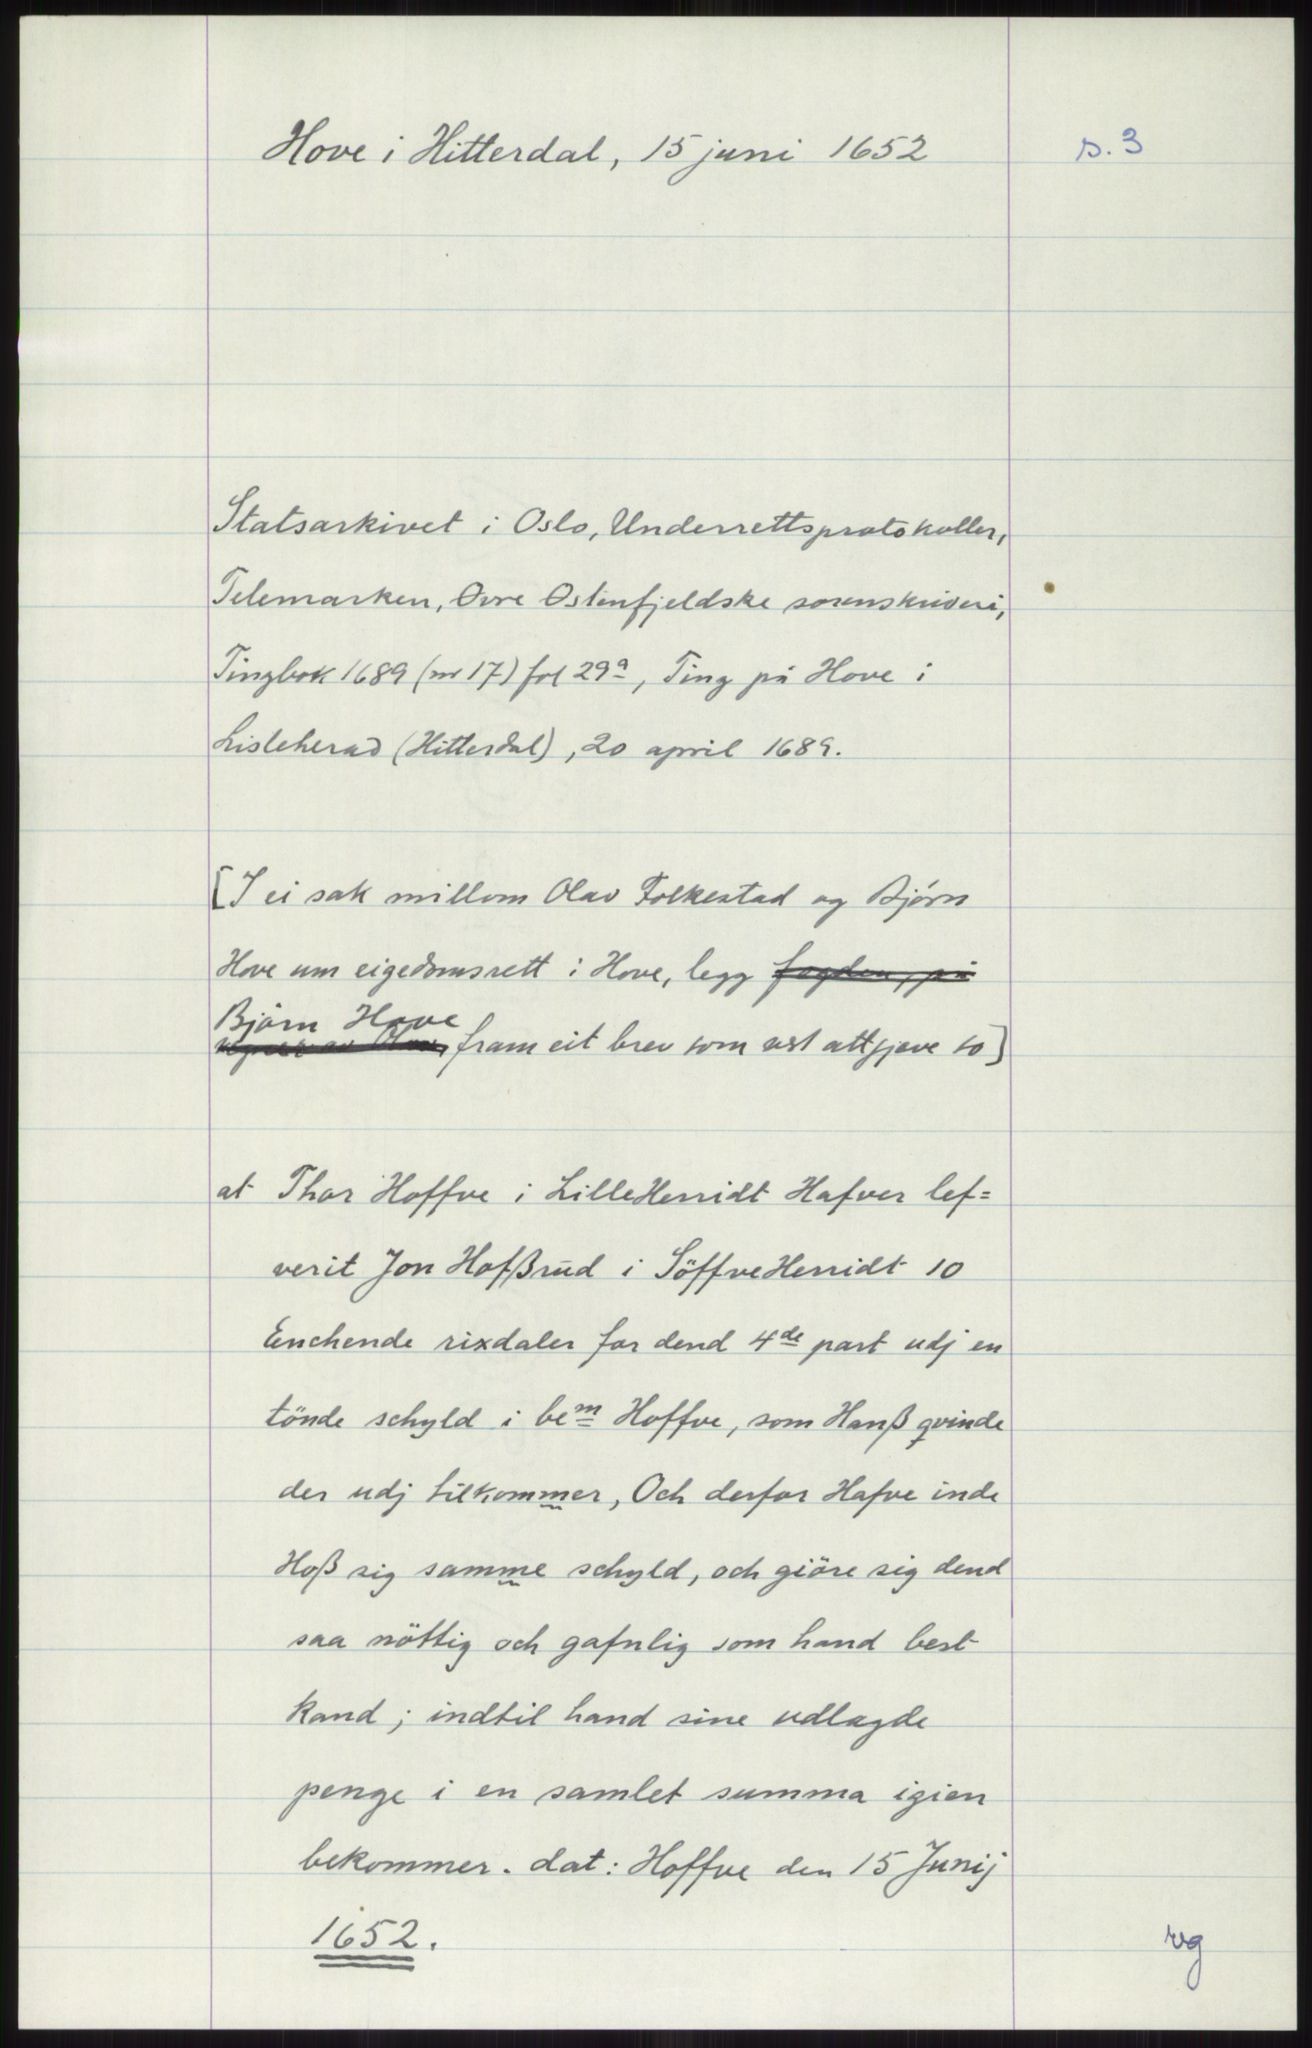 Hove i Hitterdal, 15 juni 1652
s. 3
Statsarkivet i Oslo, Underrettsprotokoller,
Telemarken, Øvre Østenfjeldske sorenskriveri,
Tingbok 1689 (nr 17) fol 29a, Ting på Hove i
Lisleherad (Hitterdal), 20 april 1689.
[I ei sak millom Olav Folkestad og Björn
Hove um eigedomsrett i Hove, legg fogden, på
Björn Hove
fram eit brev som vert attgjeve so]
at Thor Hoffve i LilleHerridt Hafver lef=
verit Jon Hofßrud i SöffveHerridt 10
Enchende rixdaler for dend 4de part udj en
tönde schyld i bem Hoffve, som Hanß qvinde
der udj tilkommer, Och derfor Hafve inde
Hoß sig samme schyld, och giöre sig dend
saa nöttig och gafnlig som hand best
kand; indtil hand sine udlagde
penge i en samlet summa igien
bekommer. dat: Hoffve den 15 Junij
1652.
rg